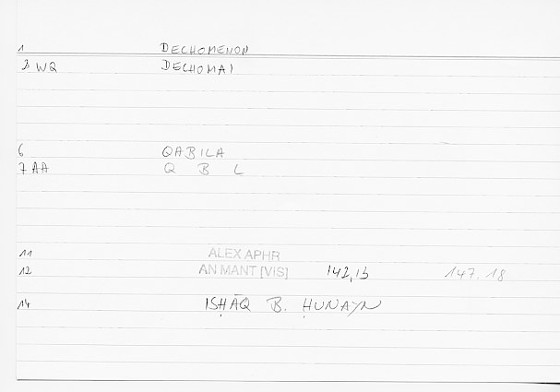 1 DECHOMENON
2 WQ DECHOMAI
6 QABILA
7 AA Q B L
11 ALEX APHR
12 AN MANT [VIS] 142,13 147,18
14 ISḤĀQ B. ḤUNAYN